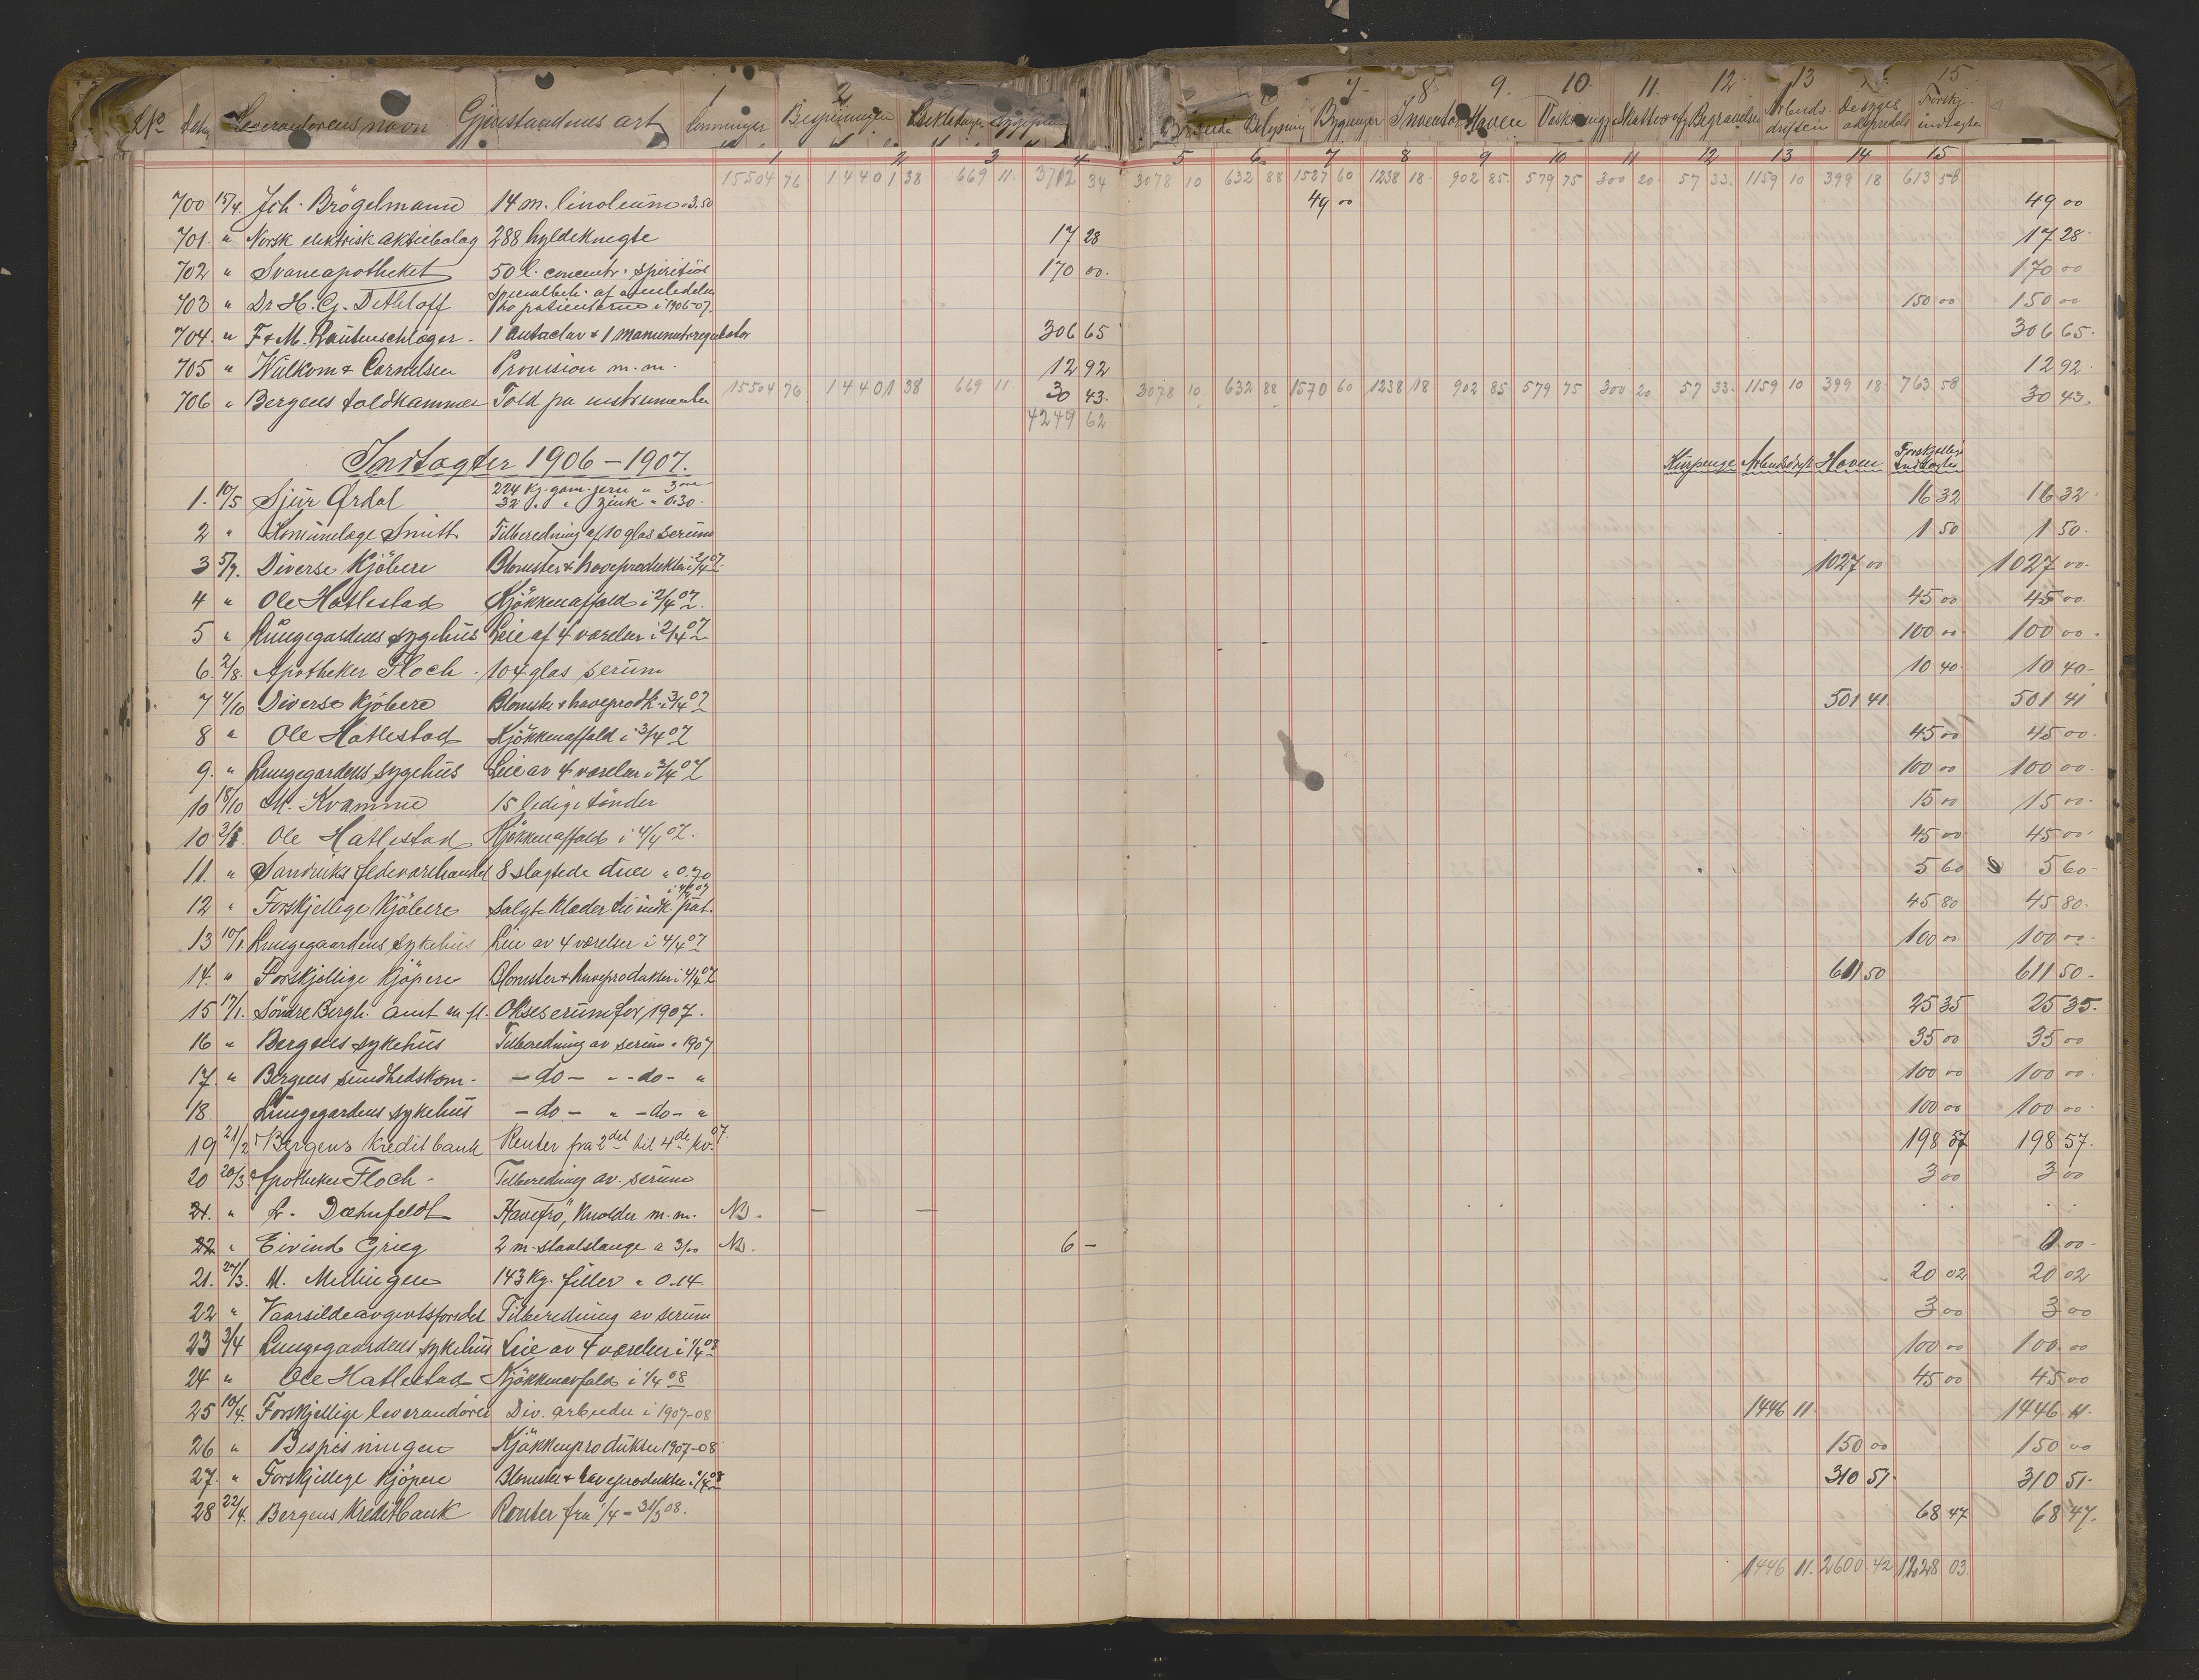 No Dato Leverandörens navn Gjenstandens art Lønninger Bespisningen Beklædning Brænde Belysning Bygninger Inventar Haven Vask Skatter Begravelser Arbeidsdriften Forskj. indtægter
1 2 7 8 9. 10. 11. 12 13 15
1 2 3 4 5 6 7 8 9 10 11 12 13 14 15
15504 76 14401 38 669 11 3712 34 3078 10 632 88 1527 60 1238 18 902 85 579 75 300 20 57 33 1159 10 399 18 613 58
700 15/4. Joh. Brögelmann 14 m. linoleum a 3.50 49 00 49 00
701. " Norsk elektrisk aktiebolag 288 hyldeknegte 17 28 17 28
702 " Svaneapotheket 50 l. concentr. spiritus 170 00 170 00
703 " Dr H. G. Dethloff Specialbeh. af
patienterne i 1906-07. 150 00 150 00
704. " F. & M. Lautenschläger. 1 Autoclav & 1 306 65 306 65
705 " Wülkow & Cornelsen Provision m. m. 12 92 12 92
15504 76 14401 38 669 11 3078 10 632 88 1570 60 1238 18 902 85 579 75 300 20 57 33 1159 10 399 18 763 58
706 " Bergens toldkammer Told på instrumenter 30 43 30 43
4249 62
Indtægter 1906 – 1907.
Kurpenge Arbeidsdrift Haven Forskjellige Indtægter
1. 10/5 Sjur Ørdal 224 kg. gam. jern a 3 øre
32 " " zink a 0.30 16 32 16 32
2 " Smitt Tilberedning af 10 glas serum 1 50 1 50
3 5/7. Diverse Kjöbere Blomster & haveprodukter i 2/4 07 1027 00 1027 00
4 " Ole Hatlestad Kjökkenaffald i 2/4 07. 45 00 45 00
5 " Lungegardens sygehus Leie af 4 værelser i 2/4 07 100 00 100 00
6. 2/8. Apotheker Floch. 104 glas serum 10 40 10 40
7 4/10 Diverse Kjöbere Blomster & haveprodk. i 3/4 07 501 41 501 41
8 " Ole Hatlestad Kjökkenaffald i 3/4 07 45 00 45 00
9. " Lungegardens sygehus Leie av 4 værelser i 3/4 07 100 00 100 00
10 18/10 M. Kvamme 15 ledige tönder 15 00 15 00
10 3/1. Ole Hatlestad Kjökkenaffald i 4/4 07. 45 00 45 00
11. " Sandviks fedevarehandel 8 slagtede duer a 0.70 5 60 5 60
i 4/4 07
12 " Forskjellige Kjöbere Solgte Klæder til indk. pat. 45 80 45 80
13 10/1. Lungegaardens sykehus Leie av 4 værelser i 4/4 07 100 00 100 00
14. " Forskjellige Kjöpere Blomster & haveprodukter i 4/4 07 611 50 611 50
15 17/1. Söndre Bergh. amt m. fl. Okseserum for 1907. 25 35 25 35
16 " Bergens sykehus Tilberedning av serum " 1907 35 00 35 00
17. " Bergens sundhedskom. – do – " – do – " 100 00 100 00
18. Lungegardens sykehus – do – " – do – " 100 00 100 00
19 21/2 Bergens Kreditbank Renter fra 2det til 4de kv. 07. 198 57 198 57
20 20/3 Apotheker Floch. Tilberedning av. serum 3 00 3 00
21. " L. Dæhnfeldt Havefrö, Knolder m. m. NB. – –
22 " Eivind Grieg 2 m. a 3/00 NB. 6 – 0 00
21. 27/3. M. Mellingen 143 kg. filler a 0.14 20 02 20 02
22 " Tilberedning av serum 3 00 3 00
23 3/4 Lungegaardens sykehus Leie av 4 værelser i 1/4 08 100 00 100 00
24 " Ole Hatlestad Kjökkenavfald i 1/4 08 45 00 45 00
25 10/4. Forskjellige leverandörer Div. arbeider i 1907-08 1446 11 1446 11
26 " Bespisningen Kjökkenprodukter 1907-08 150 00 150 00
27. " Forskjellige Kjöpere Blomster & haveprodukter i 1/4 08 310 51 310 51
28 22/4. Bergens Kreditbank Renter fra 1/4 – 31/3 08. 68 47 68 47
1446 11. 2600 42 1228 03